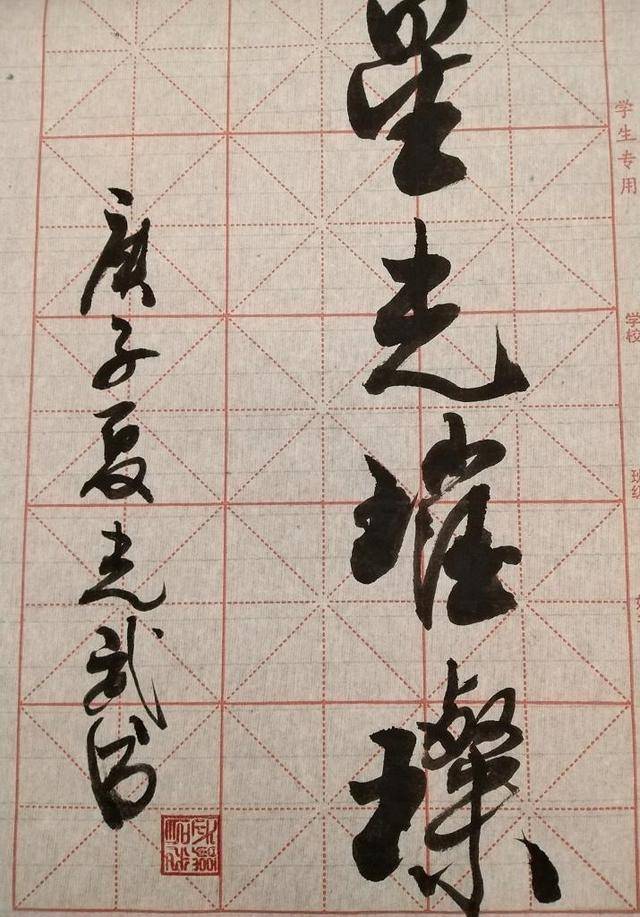 星光璀璨
庚子夏光武书
学生专用
学校
班级